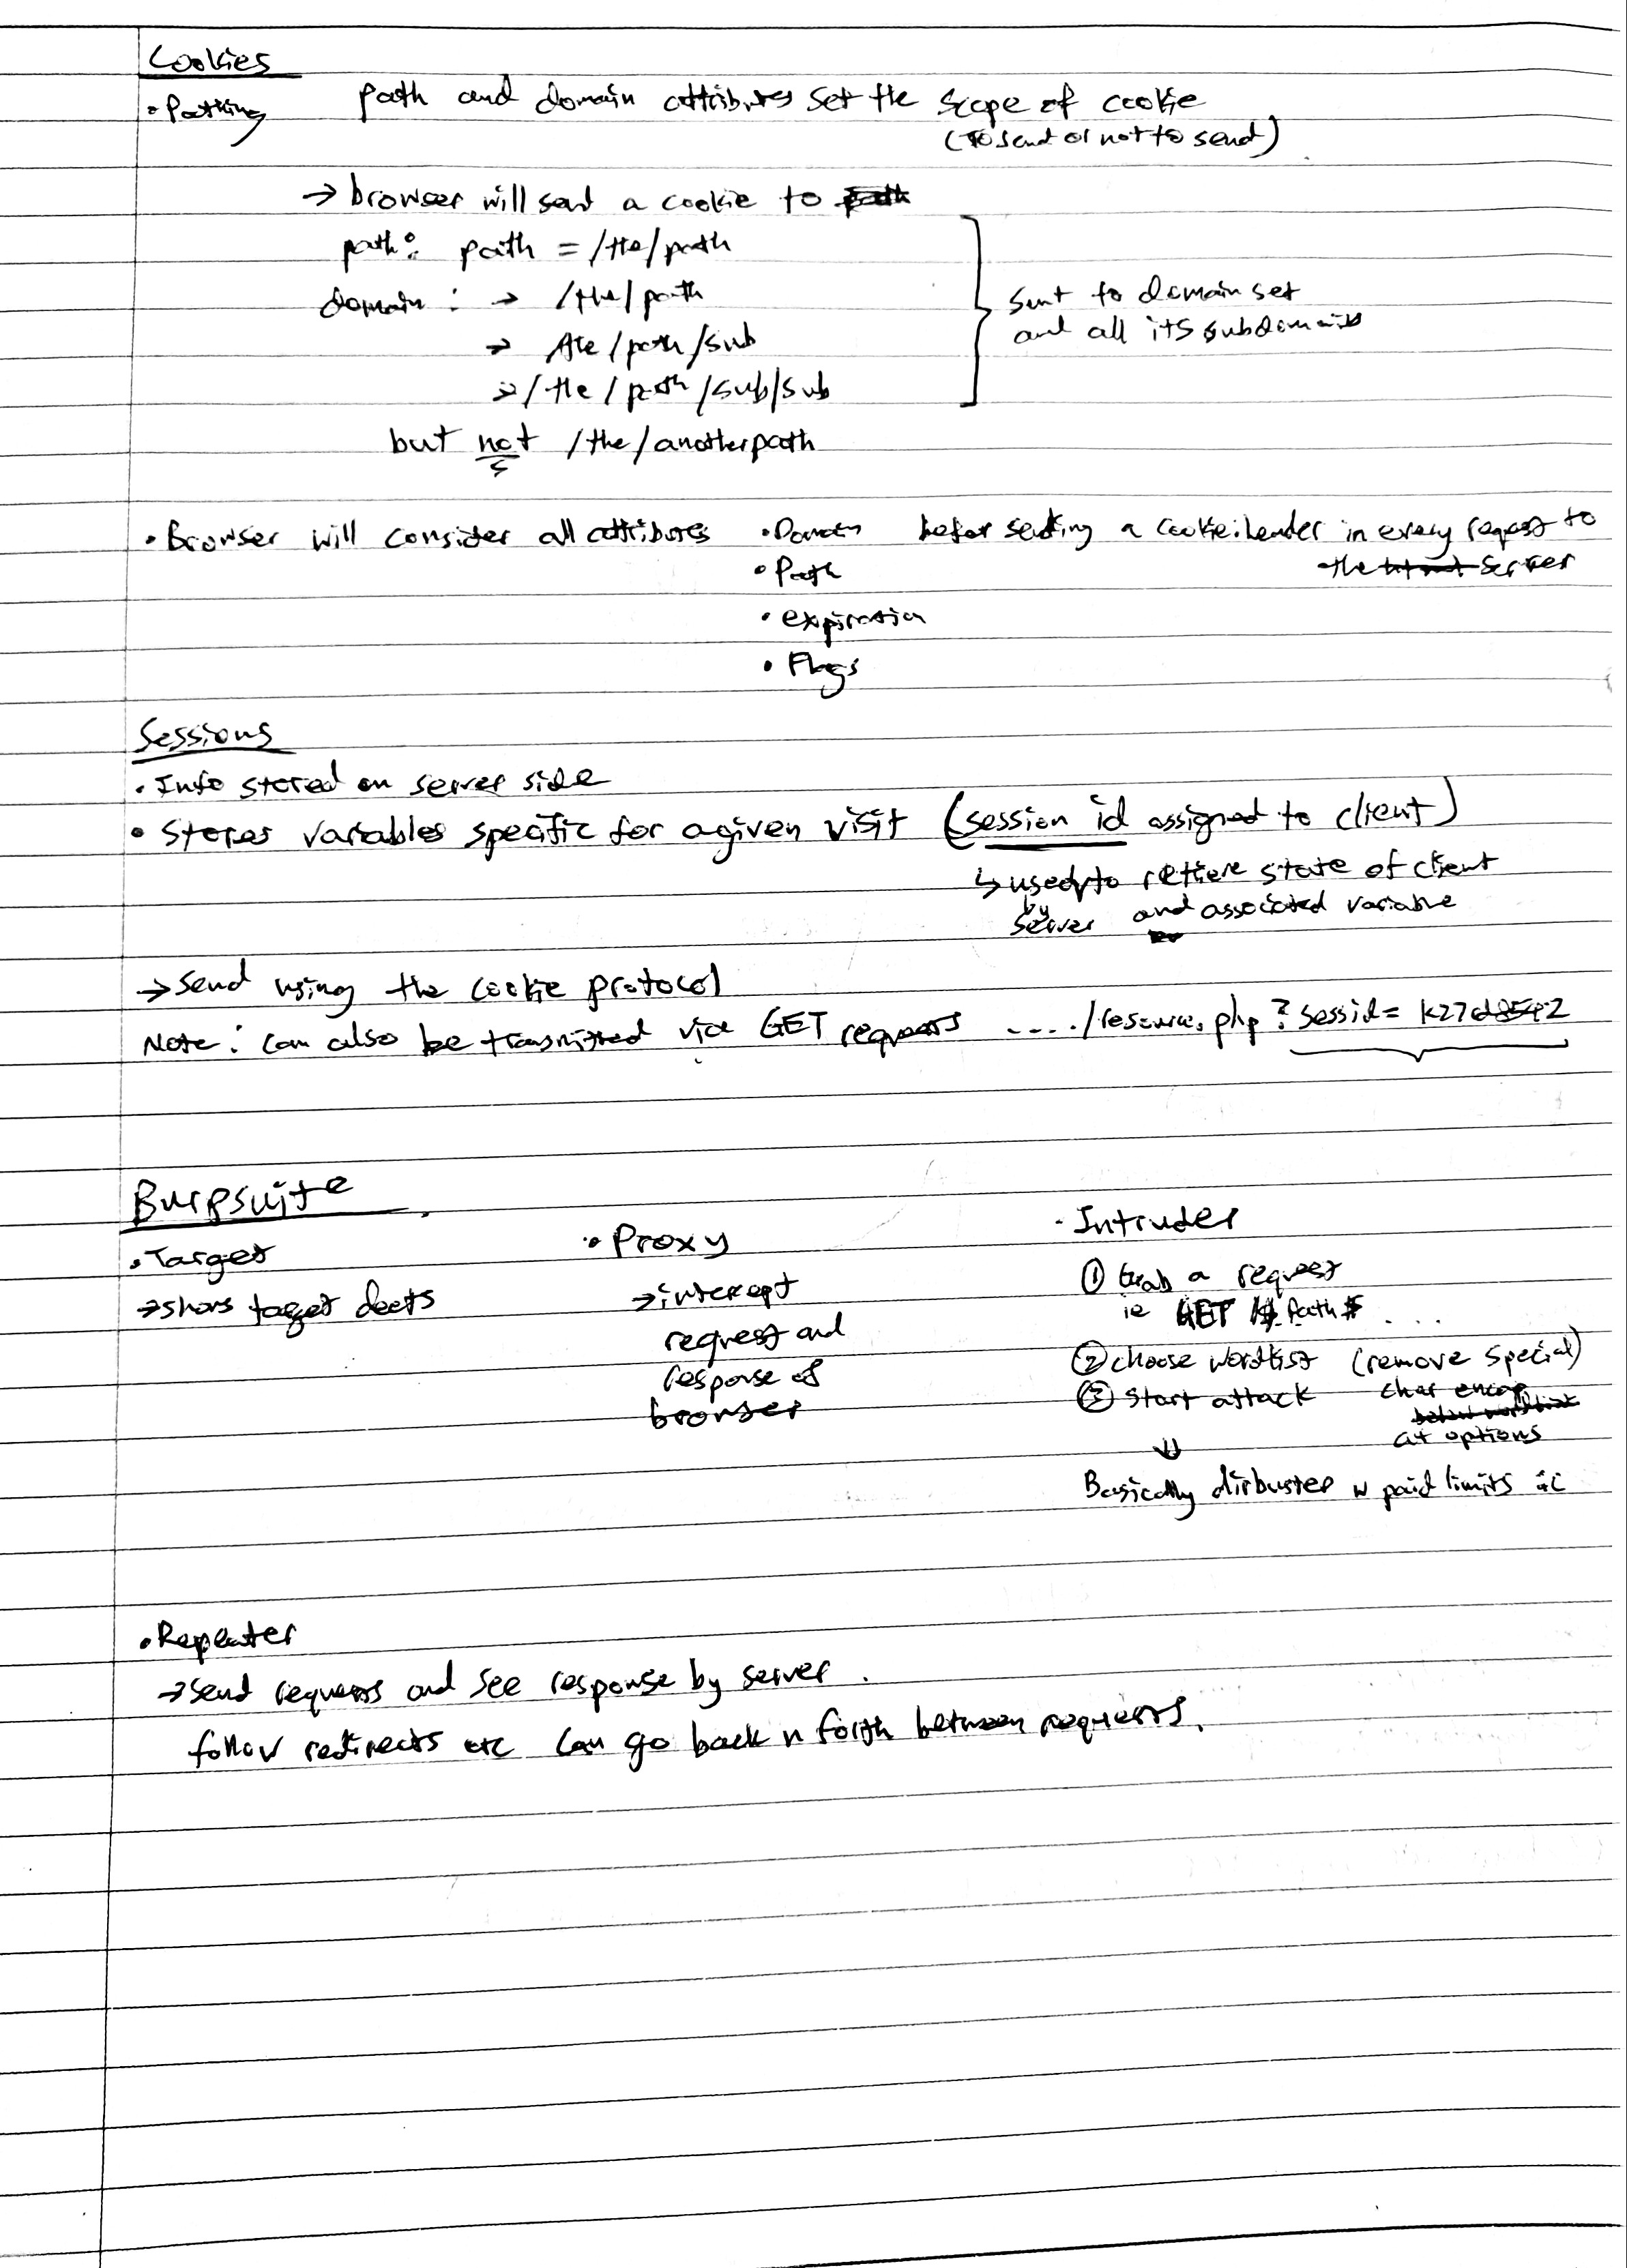 Cookies
• Pathing path and domain attributes set the scope of cookie
(To send or not to send)
→ browser will send a cookie to
path: path = /the/path
domain: → /the/path
→ /the/path/sub
→ /the/path/sub/sub
sent to domain set
and all its subdomains
but not /the/anotherpath
• Browser will consider all attributes • Domain before sending a cookie:header in every request to
the server
• Path
• expiration
• Flags
Sessions
• Info stored on server side
• Stores variables specific for a given visit (session id assigned to client)
↳ used to retrieve state of client
by server and associated variable
→ Send using the cookie protocol
Note: can also be transmitted via GET requests ..../resource.php?sessid=
Burpsuite
• Target
→ shows target deets
• Proxy
→ intercept
request and
response of
browser
• Intruder
① Grab a request
ie GET /$ Path$ ....
② choose wordlist (remove special)
char encod
at options
③ Start attack
⇓
Basically dirbuster w paid limits
• Repeater
→ Send requests and see response by server.
follow redirects etc can go back n forth between requests.